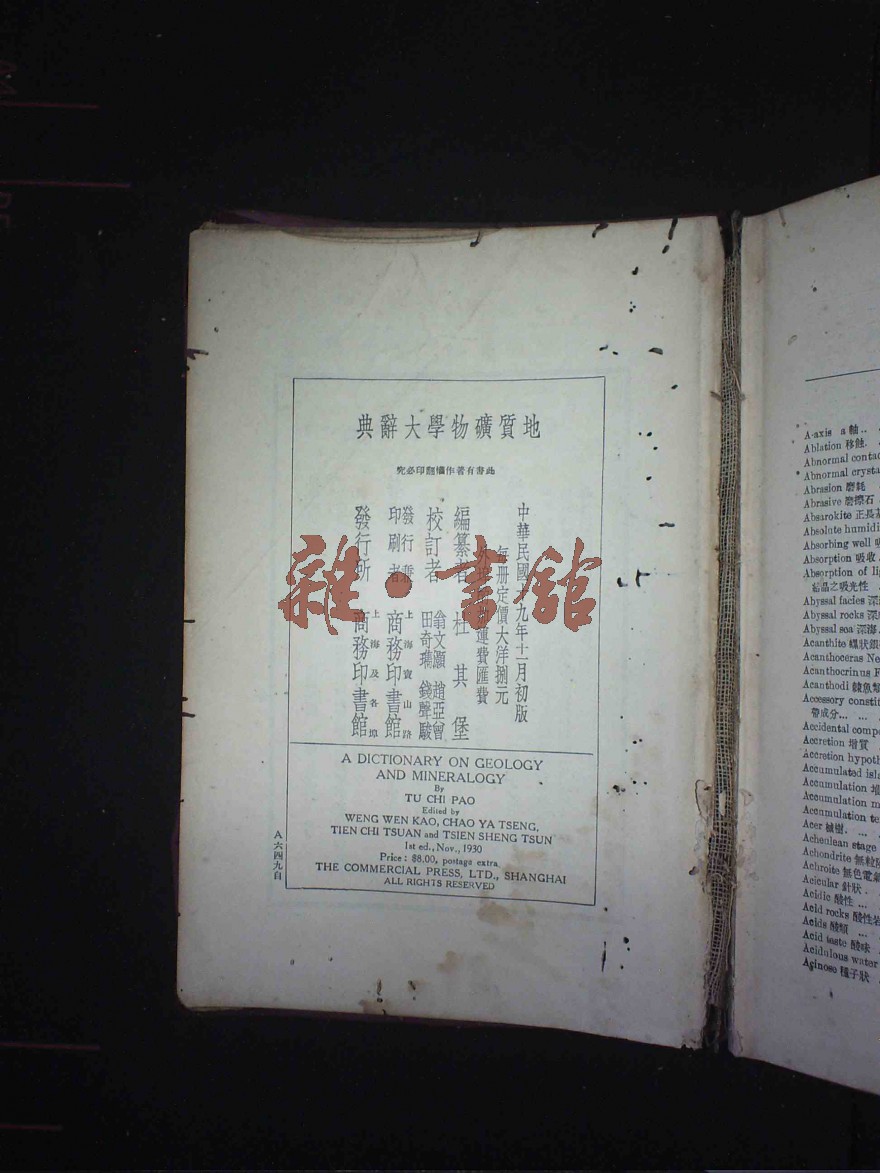 地質礦物學大辭典
此書有著作權翻印必究
中華民國十九年十一月初版
每冊定價大洋捌元
運費匯費
編纂者 杜其堡
校訂者 翁文灝 趙亞曾 田奇㻪 錢聲駿
印刷者 發行兼 上海寶山路 商務印書館
發行所 上海及各埠 商務印書館
A DICTIONARY ON GEOLOGY
AND MINERALOGY
By
TU CHI PAO
Edited by
WENG WEN KAO, CHAO YA TSENG,
TIEN CHI TSUAN and TSIEN SHENG TSUN
1st ed., Nov., 1930
Price: $8.00, postage extra
THE COMMERCIAL PRESS, LTD., SHANGHAI
ALL RIGHTS RESERVED
A六四九自
雜·書館
A-axis a軸..
Ablation 移蝕.
Abnormal
Abnormal
Abrasion 磨耗
Abrasive 磨擦石
Absarokite 正長
Absolute
Absorbing well
Absorption 吸收.
Absorption of
結晶之吸光性
Abyssal facies 深
Abyssal rocks 深
Abyssal sea 深海.
Acanthite
Acanthoceras
Acanthocrinus
Acanthodi
Accessory
帶成分... ...
Accidental
Accretion 增質
Accretion
Accumulated
Accumulation
Accumulation
Accumulation
Acer 槭樹. ...
Acheulean stage
Achondrite 無粒
Achroite 無色電氣
Acicular 針狀 .
Acidic 酸性 ...
Acid rocks 酸性岩
Acids 酸類 ...
Acid taste 酸味
Acidulous water
Acinose 種子狀